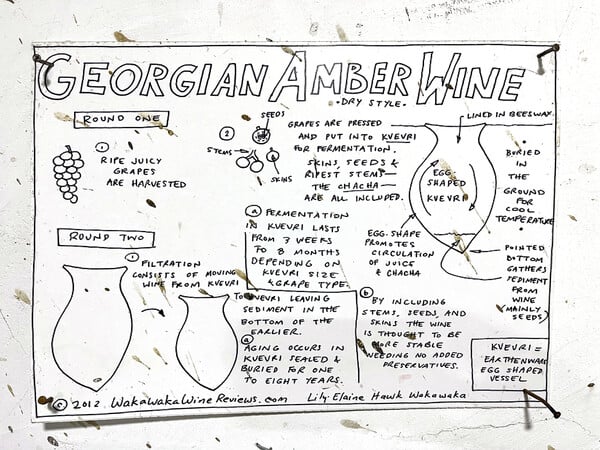 GEORGIAN AMBER WINE
• DRY STYLE •
ROUND ONE
①
RIPE JUICY
GRAPES
ARE HARVESTED
②
SEEDS
STEMS
SKINS
GRAPES ARE PRESSED
AND PUT INTO KVEVRI
FOR FERMENTATION.
SKINS, SEEDS &
RIPEST STEMS—
THE CHACHA—
ARE ALL INCLUDED.
LINED IN BEESWAX
EGG-
SHAPED
KVEVRI
BURIED
IN
THE
GROUND
FOR
COOL
TEMPERATURE
EGG-SHAPE
PROMOTES
CIRCULATION
OF JUICE
& CHACHA
POINTED
BOTTOM
GATHERS
SEDIMENT
FROM
WINE
(MAINLY
SEEDS)
ⓐ FERMENTATION
IN KVEVRI LASTS
FROM 3 WEEKS
TO 8 MONTHS
DEPENDING ON
KVEVRI SIZE
& GRAPE TYPE.
ⓑ
BY INCLUDING
STEMS, SEEDS, AND
SKINS THE WINE
IS THOUGHT TO BE
MORE STABLE
NEEDING NO ADDED
PRESERVATIVES.
ROUND TWO
①
FILTRATION
CONSISTS OF MOVING
WINE FROM KVEVRI
TO KVEVRI LEAVING
SEDIMENT IN THE
BOTTOM OF THE
EARLIER.
ⓐ
AGING OCCURS IN
KVEVRI SEALED &
BURIED FOR ONE
TO EIGHT YEARS.
KVEVRI =
EARTHENWARE
EGG SHAPED
VESSEL
© 2012 WakaWakaWineReviews.com Lily-Elaine Hawk Wakawaka